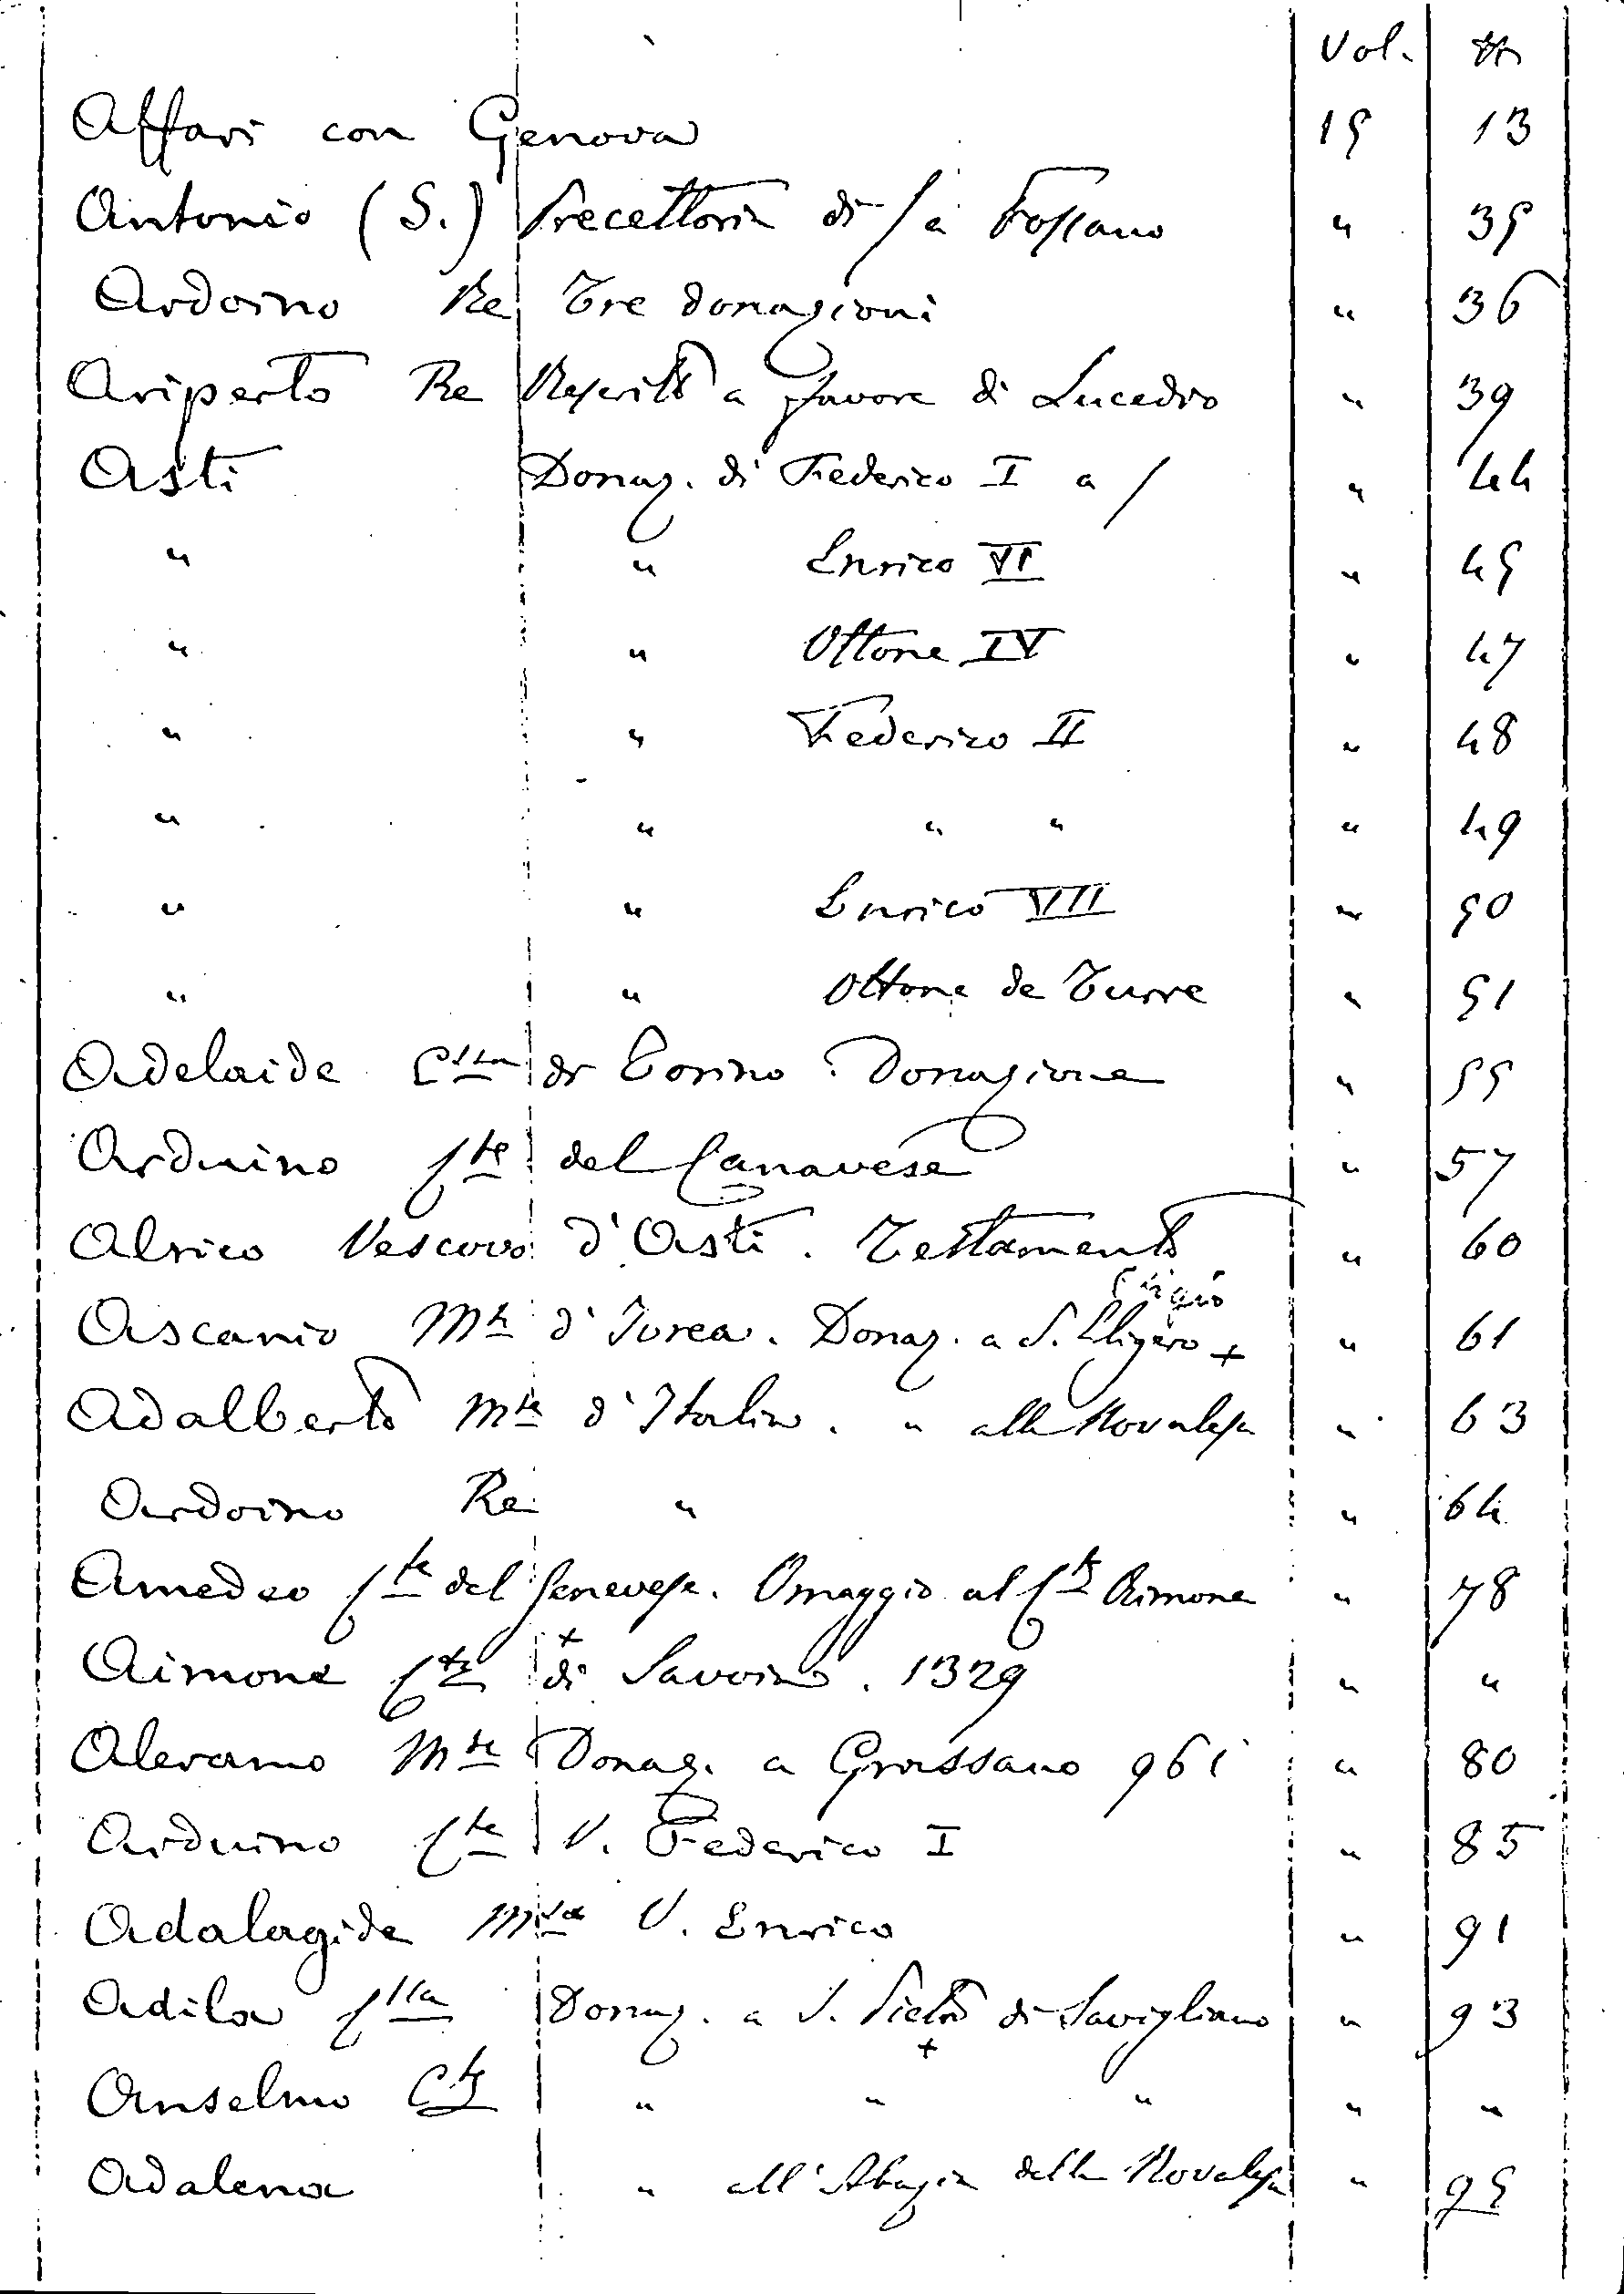 Vol. #
Affari con Genova 15 13
Antonio (S.) Precettoria di / a Fossano " 35
Ardoino Re Tre donazioni " 36
Ariperto Re Rescritto a favore di Lucedio " 39
Asti Donaz. di Federico I a / " 44
" " Enrico VI " 45
" " Ottone IV " 47
" " Federico II " 48
" " " " " 49
" " Enrico VII " 50
" " Ottone de Turre " 51
Adelaide Cssa di Torino. Donazione " 55
Arduino Cte del Canavese " 57
Alrico Vescovo d'Asti. Testamento " 60
Ascanio Mse d'Ivrea. Donaz. a S. + " 61
Adalberto Mse d'Italia. " alla Novalesa " 63
Ardoino Re " " 64
Amedeo Cte del Genevese. Omaggio al Cte Aimone " 78
Aimone Cte di Savoia. 1329 " "
Aleramo Mse Donaz. a Grassano 961 " 80
Arduino Cte V. Federico I " 85
Adalagida Msa V. Enrico " 91
Adila Cssa Donaz. a S. Pietro di Savigliano " 93
Anselmo Cte " " " " "
Adalena " all'Abazia della Novalesa " 95